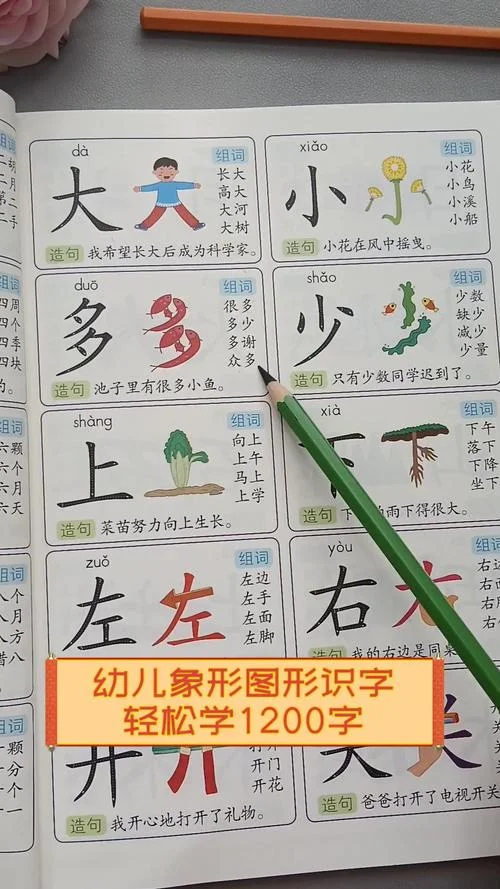 dà
组词
大
长大
高大
大河
大树
造句 我希望长大后成为科学家。
xiǎo
组词
小
小花
小鸟
小溪
小船
造句 小花在风中摇曳。
duō
组词
多
很多
多少
多谢
众多
造句 池子里有很多小鱼。
shǎo
组词
少
少数
缺少
减少
少量
造句 只有少数同学迟到了。
shàng
组词
上
向上
上午
马上
上学
造句 菜苗努力向上生长。
xià
组词
下
下午
落下
下降
下坐
造句 下
雨下得很大。
zuǒ
组词
左
左
左边
左手
左面
左脚
yòu
组词
右
右
右边
我的右边是同桌
幼儿象形图形识字
轻松学1200字
开
开
开门
开花
造句 我开心地打开了礼物。
关
关
造句 爸爸打开了电视开关
二胡
二月
第二
二手
四周
四个
四季
四块
六颗
六个
六月
六天
组词
八个
八月
八方
组词
一颗
十分
十个